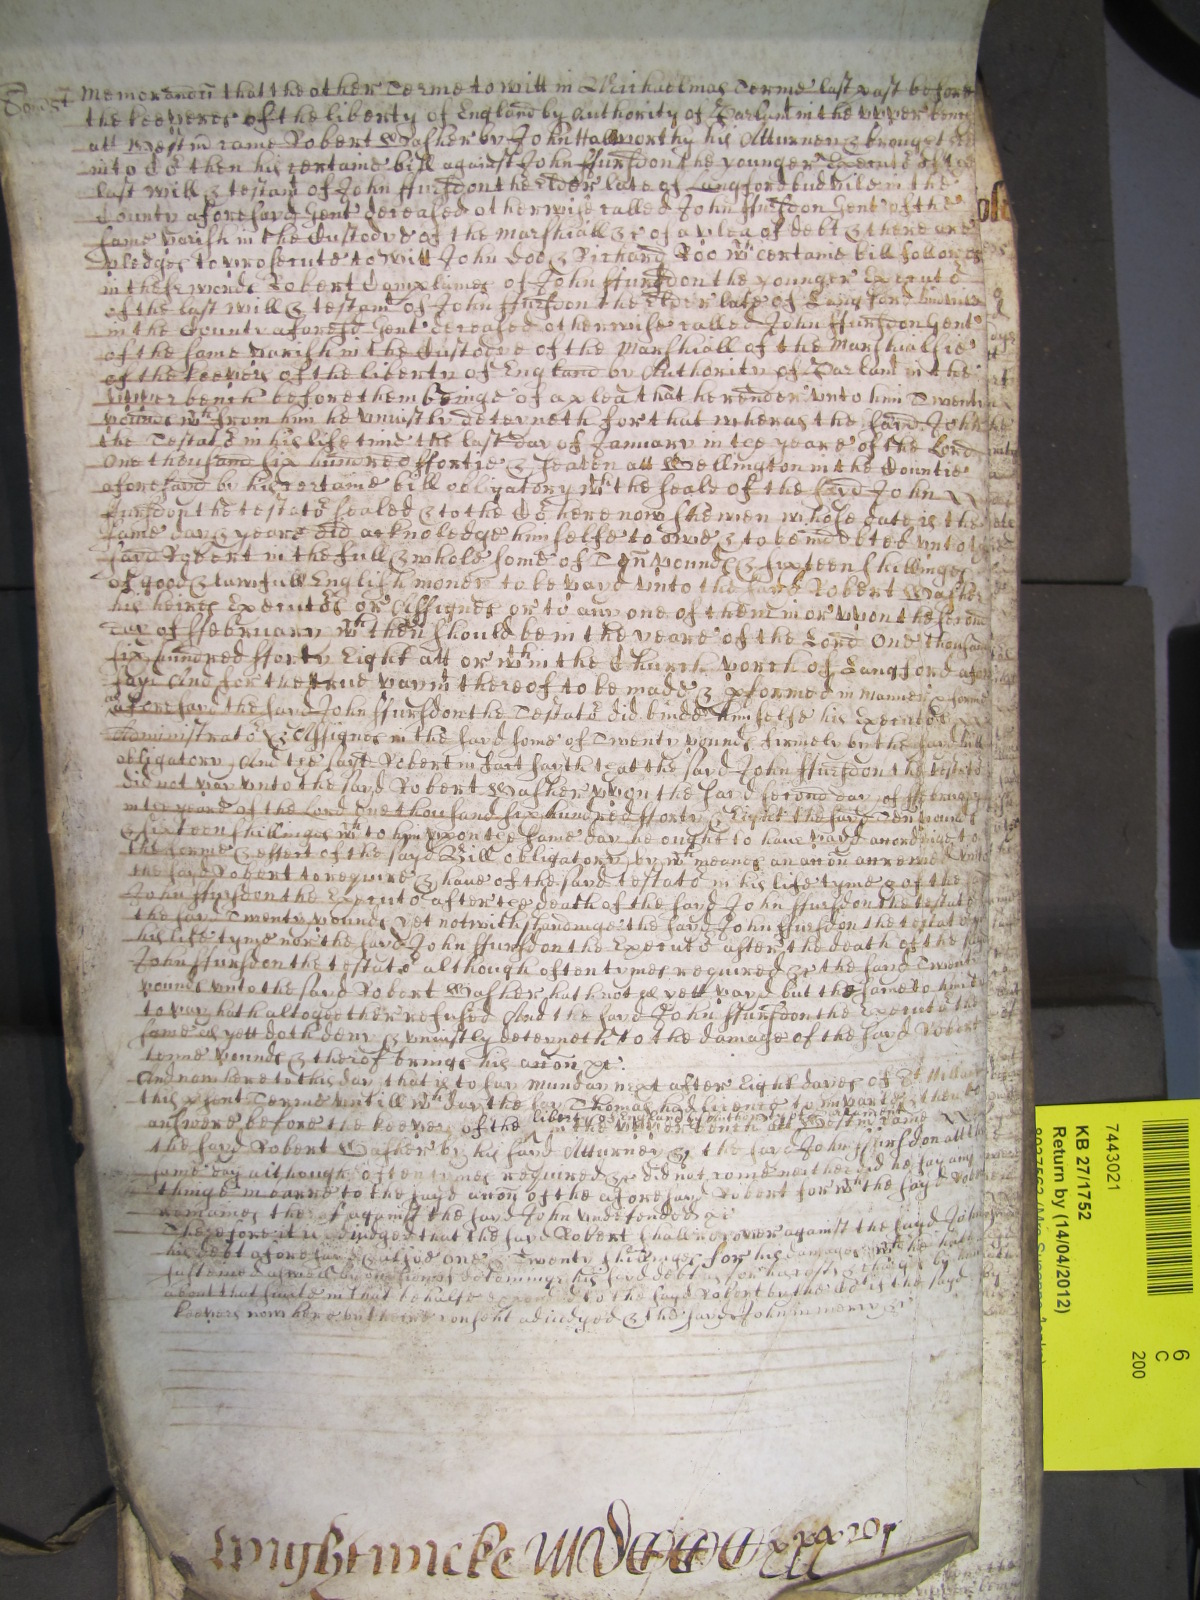 Somst Memorandu that the other Terme to witt in Michaellmas Terme last past before
the keepers of the liberty of England by Authority of Parliam in the upper bench
att Westm came Robert by John his Atturney & brought
into Co then his certaine bill against John ffursdon the younger Executo of the
last will & testam of John ffursdon the Elder late of Langford budvile in the
County aforesayd Gent deceased otherwise called John ffursdon Gent of the
same parish in the Custodye of the Marshiall &c of a plea of debt & there are
pledges to prosecute to witt John Doo & Richard Roo wch certaine bill followes
in these words Robert Complaines of John ffursdon the younger Executo
of the last will & testam of John ffursdon the Elder late of Langford
in the County aforesd Gent deceased otherwise called John ffursdon Gent
of the same parish in the Custodye of the Marshiall of the Marshialsie
of the keepers of the liberty of England by Authority of Parliam in the
upper bench before them beinge of a plea that he render unto him Twenty
pounds wch from him he uniustly deteyneth for that wheras the sayd John
the Testato in his life time the last day of January in the yeare of the Lord
One thousand six hundred ffortie & seaven att Wellington in the Countie
aforesayd by his certaine bill obligatory wth the seale of the sayd John
ffursdon the testato sealed & to the Co here now shewen whose date is the
same day & yeare did acknoledge himselfe to owe & to be indebted unto the
sayd Robert in the full & whole some of Ten pounds & sixteen shillinges
of good & lawfull English money to be payd unto the sayd Robert
his heires Executos or Assignes or to any one of them in or upon the second
day of ffebruary wch then should be in the yeare of the Lord One thousand
six hundred fforty Eight att or wthin the Church porch of Langford afore
sayd And for the true paym thereof to be made & pformed in manner & forme
as aforesayd the sayd John ffursdon the Testato did binde himselfe his Executos
Administrato & Assignes in the sayd some of Twenty pounds firmely by the sayd bill
obligatory And the sayd Robert in fact sayth that the sayd John ffursdon the testato
did not pay unto the sayd Robert upon the sayd second day of ffebruary
in the yeare of the Lord One thousand six hundred fforty & Eight the sayd Ten pounds
& sixteen shillinges wch to him upon the same day he ought to have payd accordinge to
the forme & effect of the sayd Bill obligatory by wch meanes an accon accrewed unto
the sayd Robert to require & have of the sayd testato in his life tyme & of the
John ffursdon the Executo after the death of the sayd John ffursdon the testato
the sayd Twenty pounds Yet notwithstandinge the sayd John ffursdon the testato
his life tyme nor the sayd John ffursdon the Executo after the death of the sayd
John ffursdon the testato although oftentymes required &c the sayd Twenty
pounds unto the sayd Robert hath not as yett payd but the same to him
to pay hath altogether refused And the sayd John ffursdon the Executo the
same as yett doth deny & uniustly deteyneth to the damage of the sayd Robert
tenne pounds & therof brings his accon &c.
And now here to this day that is to say Munday next after Eight dayes of St Hillary
this psent Terme untill wch day the sayd had licence to imparle & then to
answere before the keepers of the liberty of England by authority of Parliament in the upper bench att Westm came
the sayd Robert by his sayd Atturney & the sayd John ffursdon att the
same day although oftentymes required &c did not come neither did he say any
thinge in to the sayd accon of the aforesayd Robert for wch the sayd Robert
remaines therof against the sayd John undefended &c
Therefore it is adiudged that the sayd Robert shall recover against the sayd John
his debt aforesayd Twenty shillinges for his damages wch he hath
susteined by occasion of deteyninge his sayd debt as for his costs & charges by him
about that suite in that behalfe to the sayd Robert by the sayd
keepers now here consent adiudged & the sayd John in mercy &c
Wightwicke
7443021
KB 27/1752
Return by (14/04/2012)
6
C
200